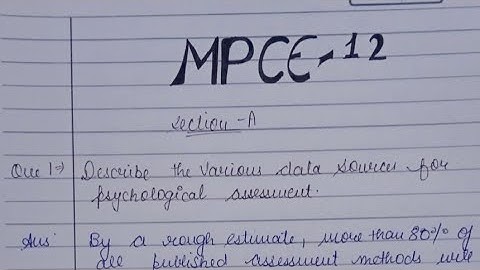 MPCE-12
Section -A
Que 1→) Describe the various data sources for
psychological assessment.
Ans: By a rough estimate, more than 80% of
all published assessment methods were